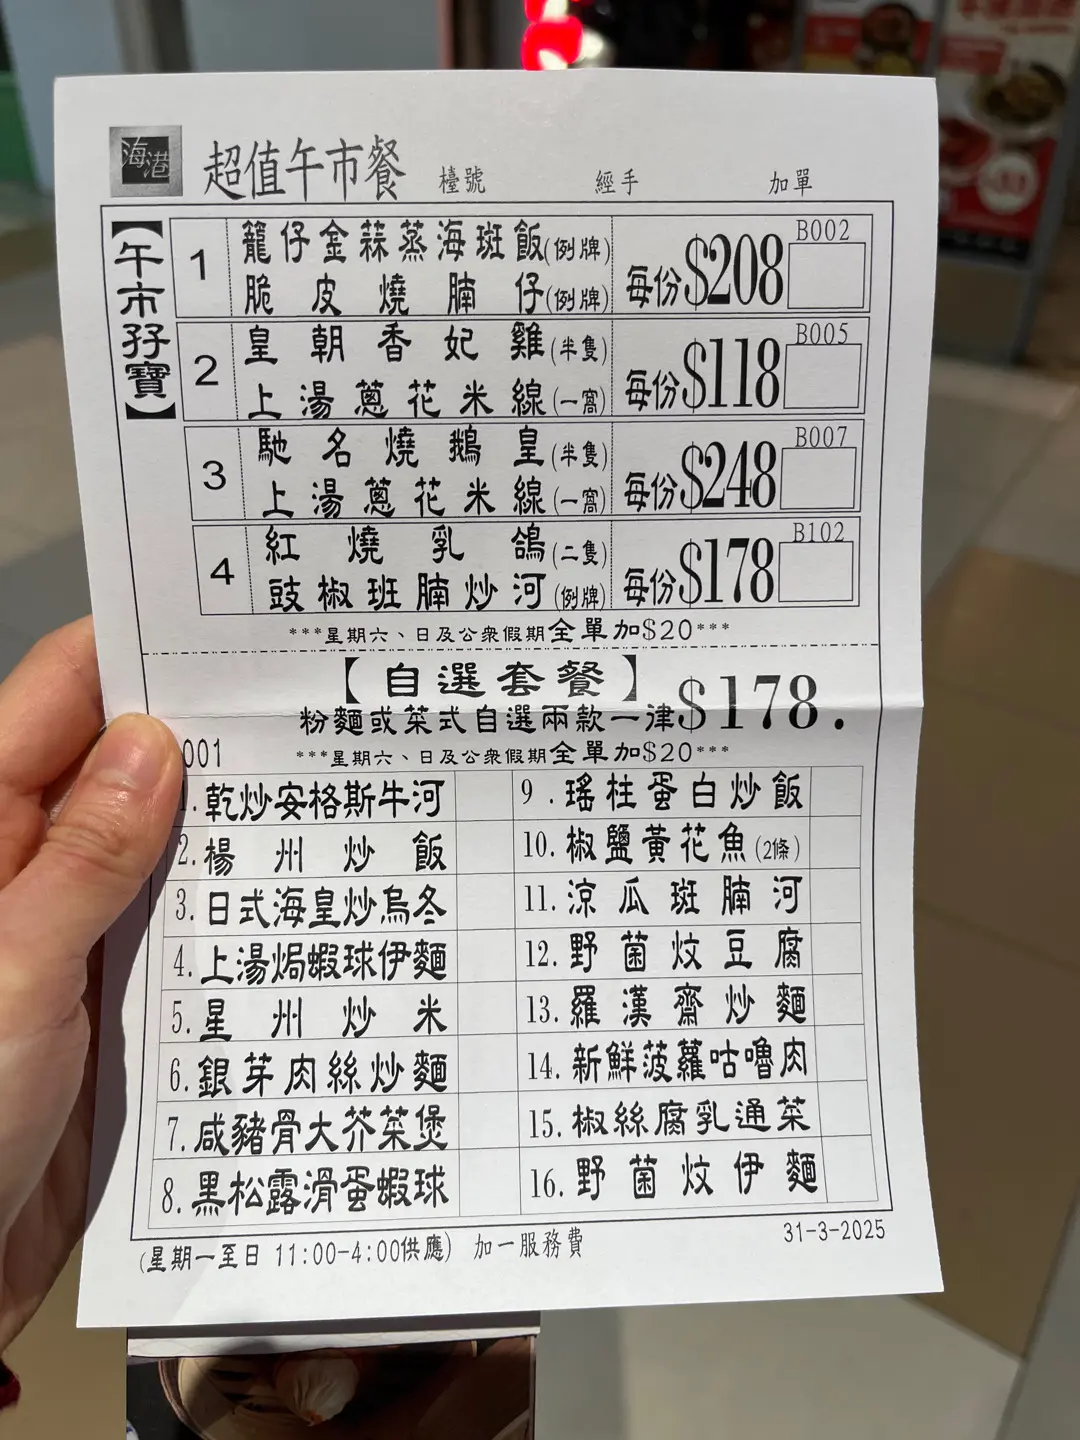 海港
超值午市餐 檯號 經手 加單
【午市孖寶】
1 籠仔金蒜蒸海斑飯(例牌)
脆皮燒腩仔(例牌)
每份$208 B002
2 皇朝香妃雞(半隻)
上湯蔥花米線(一窩)
每份$118 B005
3 馳名燒鵝皇(半隻)
上湯蔥花米線(一窩)
每份$248 B007
4 紅燒乳鴿(二隻)
豉椒班腩炒河(例牌)
每份$178 B102
***星期六、日及公衆假期全單加$20***
【自選套餐】
粉麵或菜式自選兩款一律$178.
001 ***星期六、日及公衆假期全單加$20***
1.乾炒安格斯牛河
2.楊州炒飯
3.日式海皇炒烏冬
4.上湯焗蝦球伊麵
5.星州炒米
6.銀芽肉絲炒麵
7.咸豬骨大芥菜煲
8.黑松露滑蛋蝦球
9.瑤柱蛋白炒飯
10.椒鹽黃花魚(2條)
11.涼瓜斑腩河
12.野菌炆豆腐
13.羅漢齋炒麵
14.新鮮菠蘿咕嚕肉
15.椒絲腐乳通菜
16.野菌炆伊麵
(星期一至日 11:00-4:00供應) 加一服務費 31-3-2025